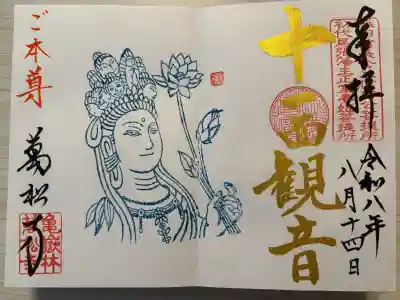 奉拝
令和八年
八月十四日
十一面観音
ご本尊
萬松寺
亀嶽林
萬松寺